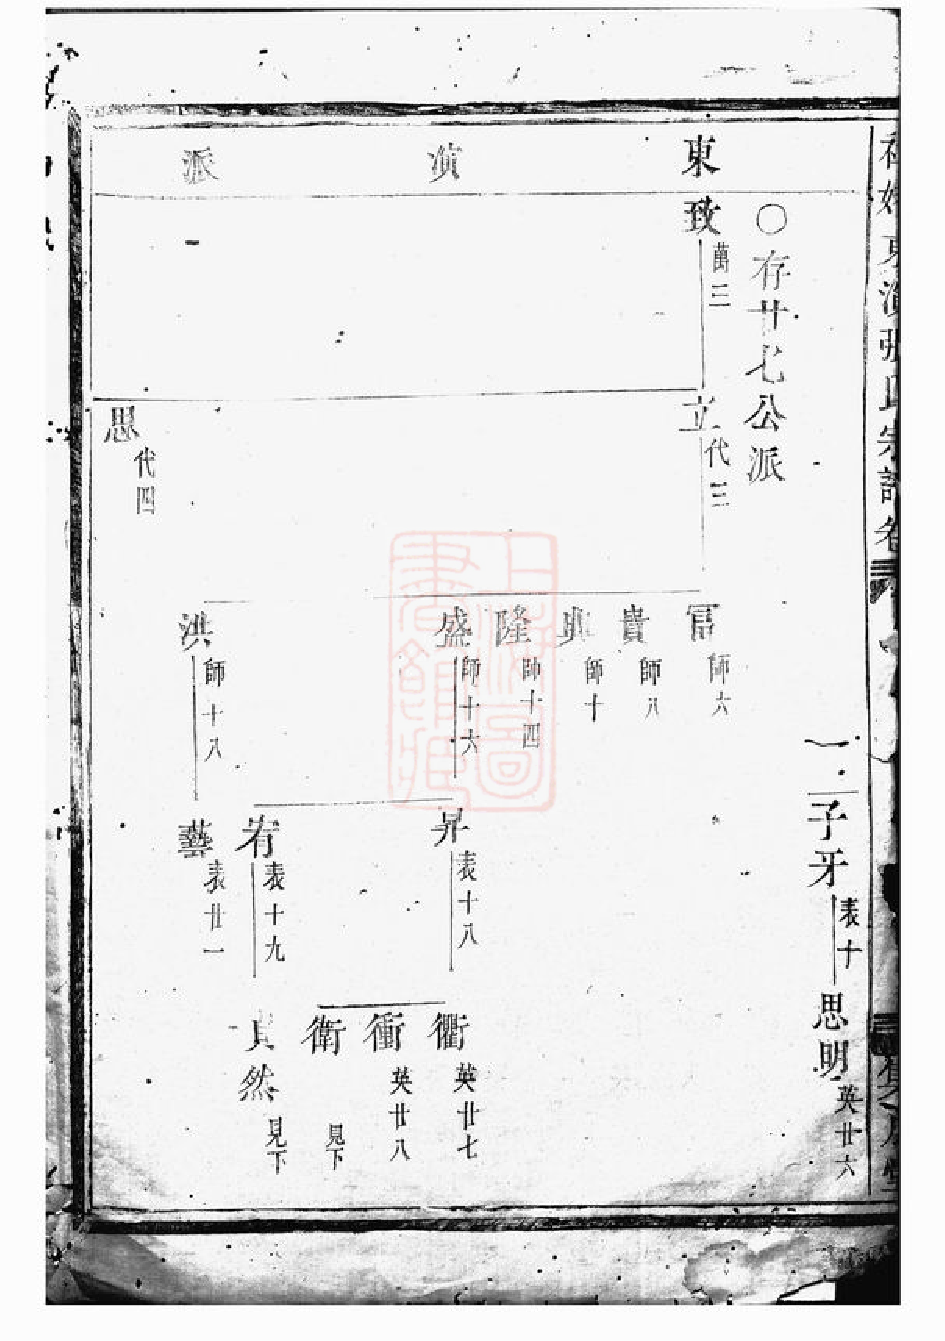 東演派
一子牙表十
思明英廿六
○存廿七公派
致萬三
立代三
思代四
冨師六
貴師八
興師十
隆師十四
盛師十六
洪師十八
昇表十八
宥表十九
藝表廿一
衢英廿七
衝英廿八
衛見下
然見下
東演張氏宗譜卷
上海圖書館藏